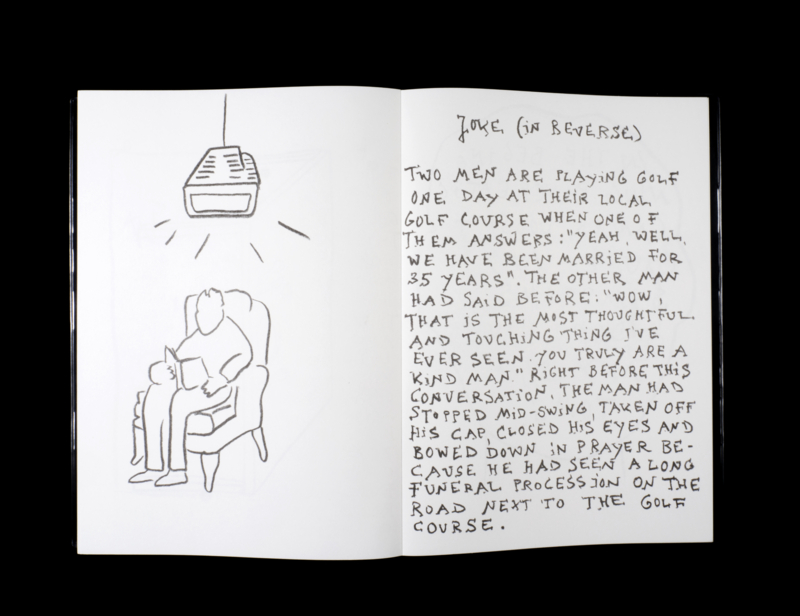 JOKE (IN BEVERSE)
TWO MEN ARE PLAYING GOLF
ONE DAY AT THEIR LOCAL
GOLF COURSE WHEN ONE OF
THEM ANSWERS: "YEAH, WELL,
WE HAVE BEEN MARRIED FOR
35 YEARS". THE OTHER MAN
HAD SAID BEFORE: "WOW,
THAT IS THE MOST THOUGHTFUL
AND TOUCHING THING I'VE
EVER SEEN. YOU TRULY ARE A
KIND MAN." RIGHT BEFORE THIS
CONVERSATION, THE MAN HAD
STOPPED MID-SWING, TAKEN OFF
HIS CAP, CLOSED HIS EYES AND
BOWED DOWN IN PRAYER BE-
CAUSE HE HAD SEEN A LONG
FUNERAL PROCESSION ON THE
ROAD NEXT TO THE GOLF
COURSE.